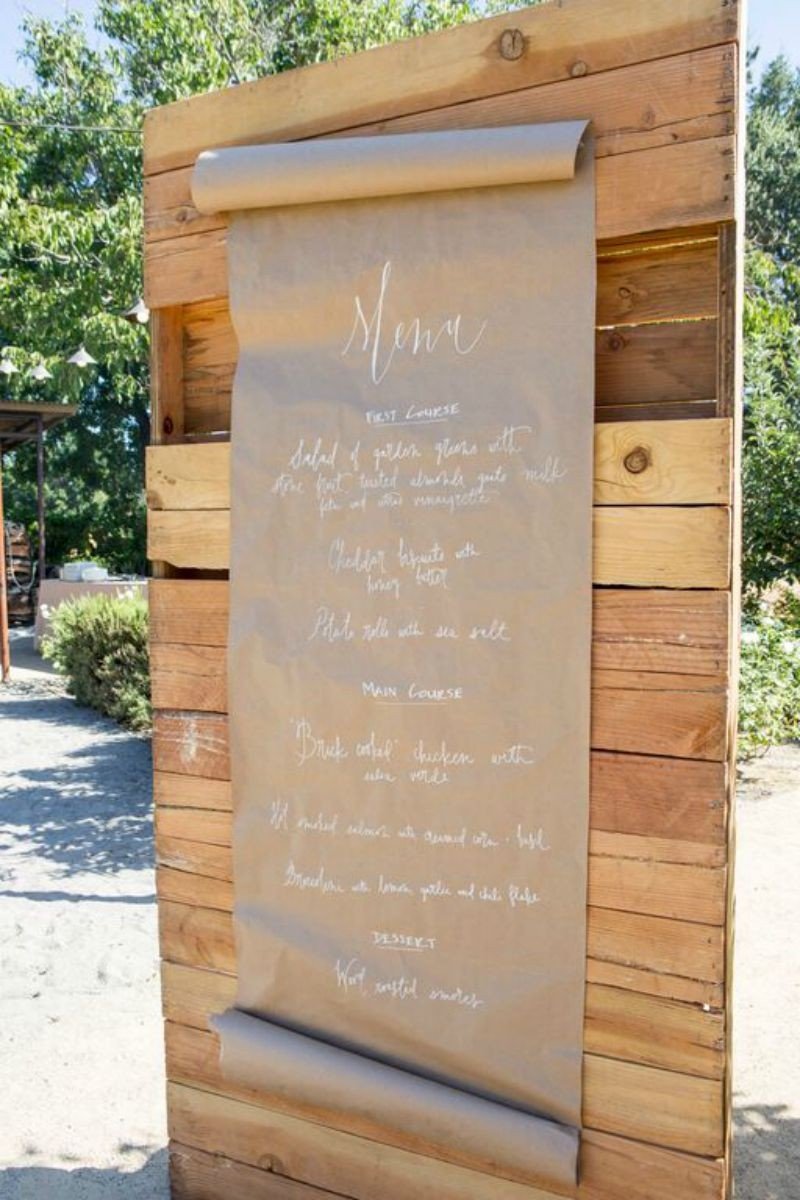 Menu
FIRST COURSE
Salad of garden greens with
stone fruit, toasted almonds, goats milk
feta and citrus vinaigrette
Cheddar biscuits with
honey butter
Potato rolls with sea salt
MAIN COURSE
"Brick cooked" chicken with
salsa verde
Hot smoked salmon with creamed corn + basil
Broccolini with lemon garlic and chili flake
DESSERT
Wood roasted smores